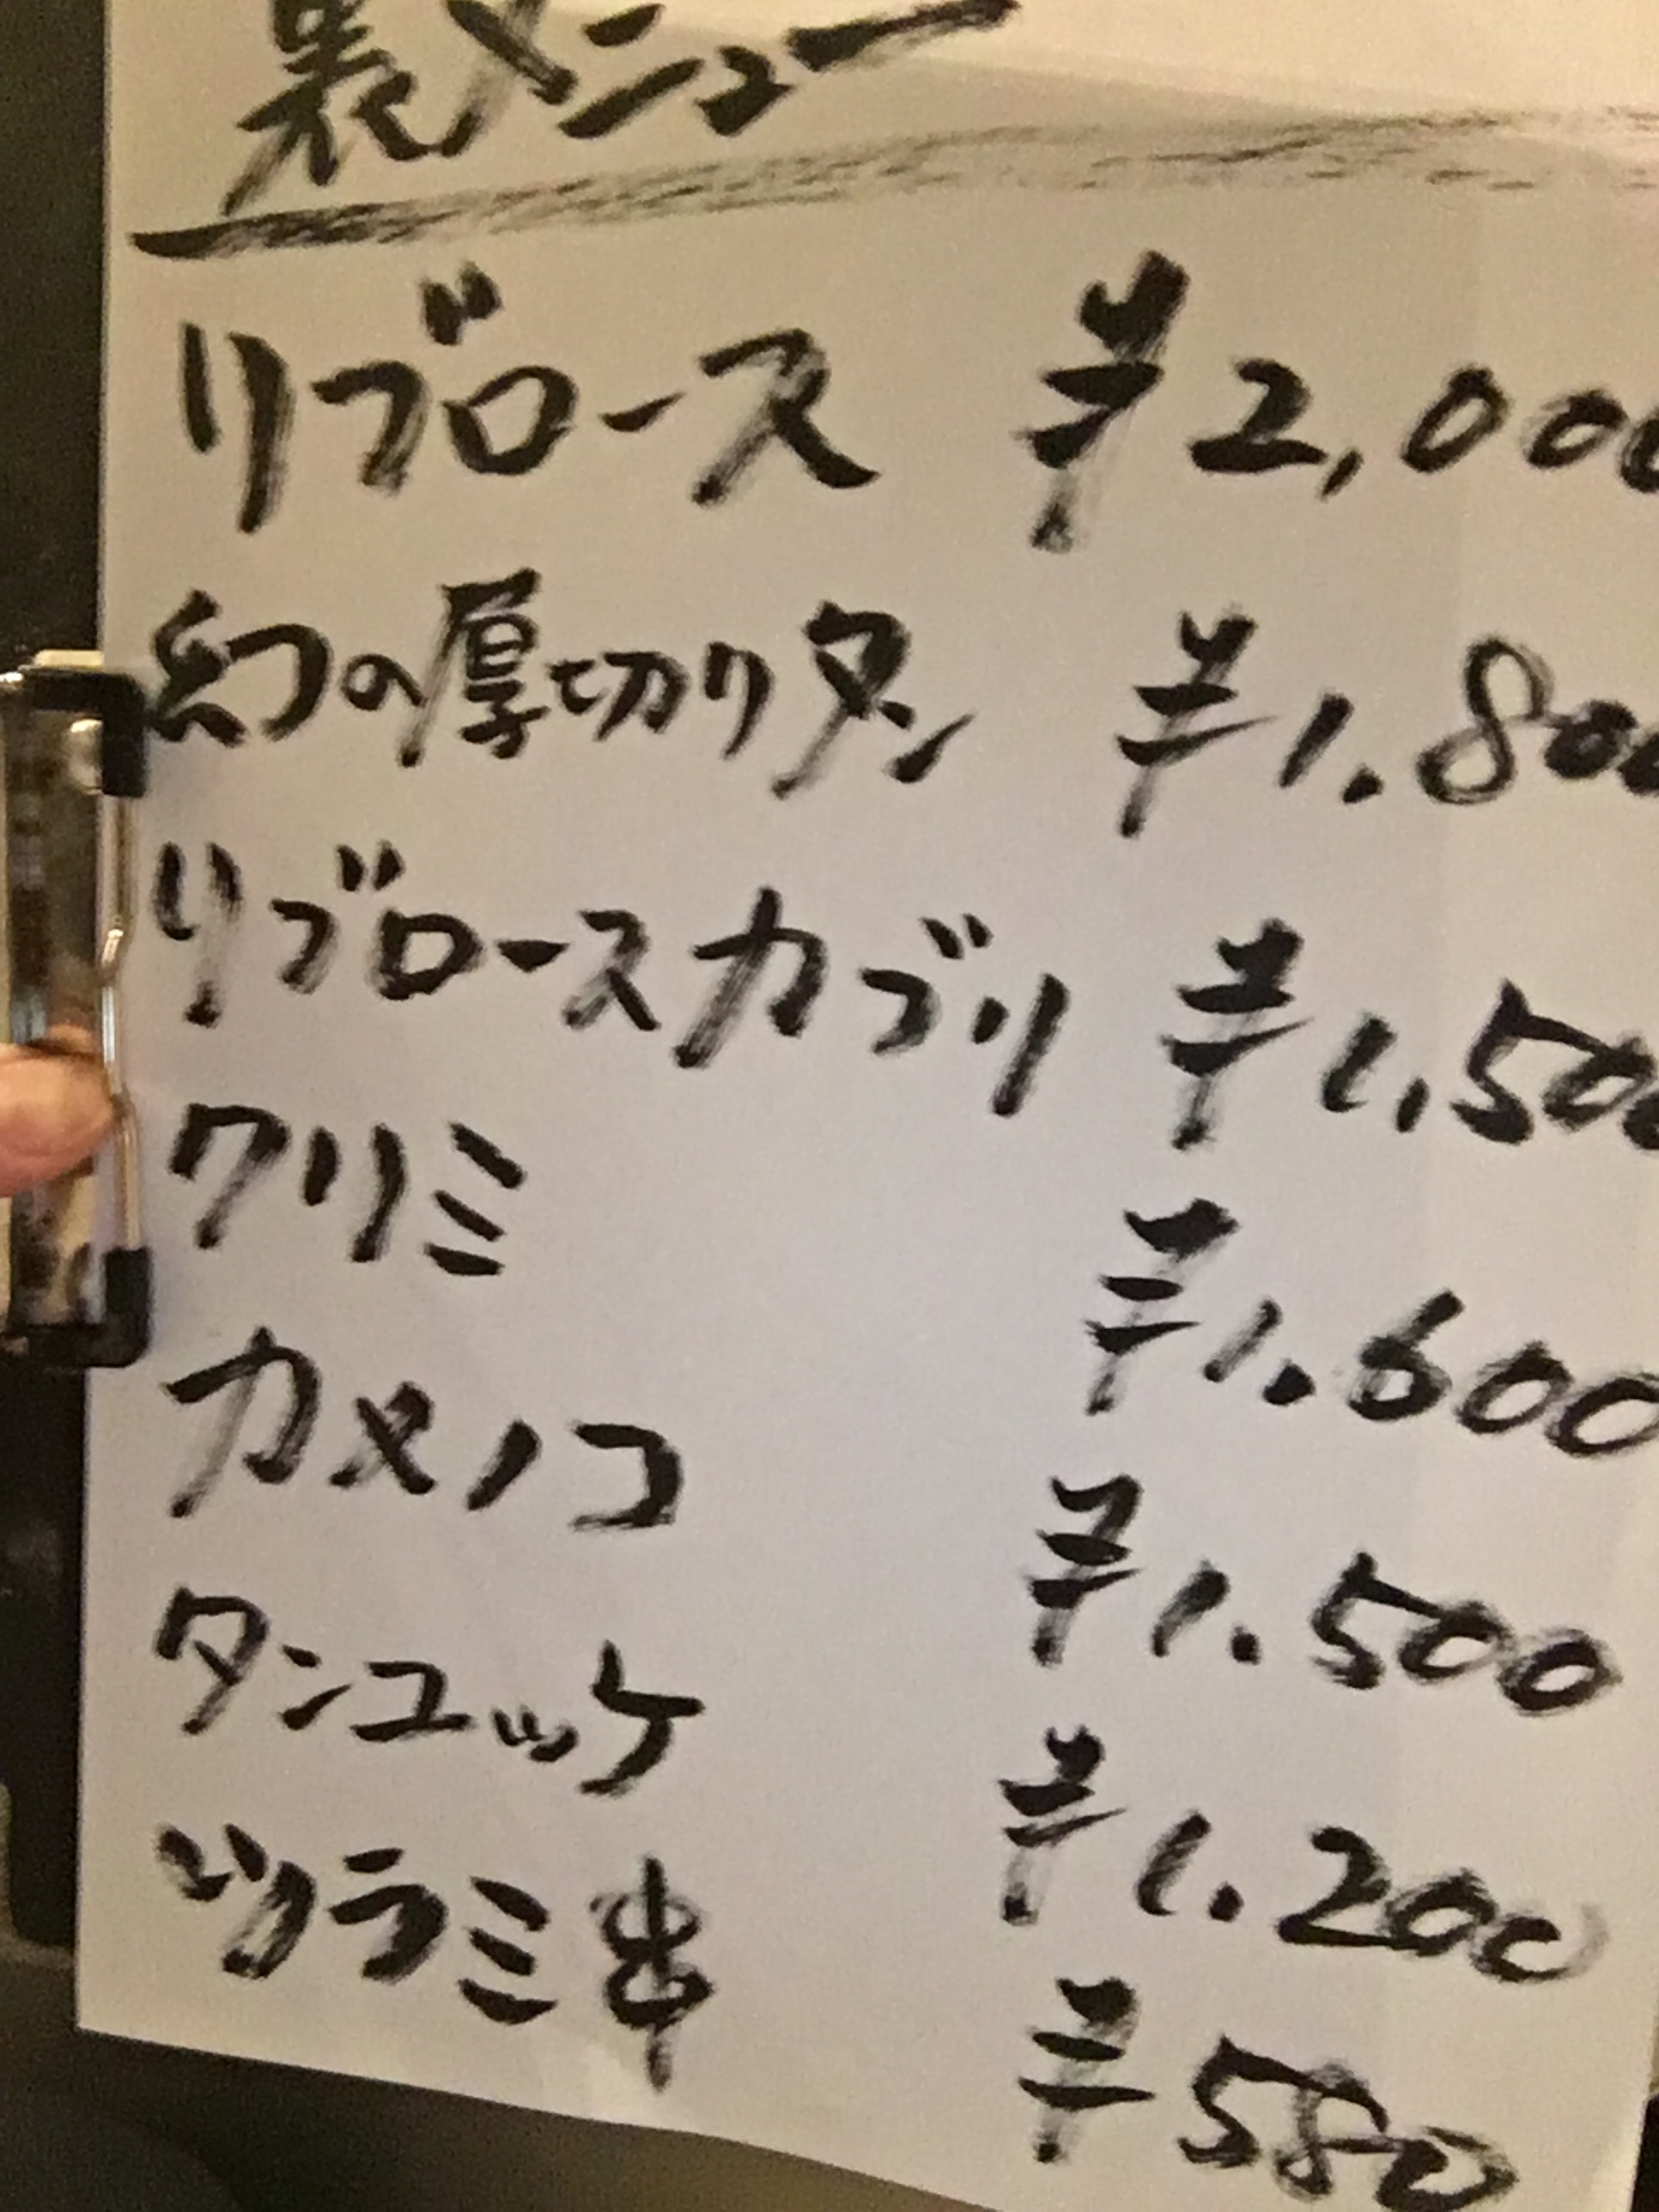 裏メニュー
リブロース ¥2,000
幻の厚切りタン ¥1.800
リブロースカブリ ¥1,500
クリミ ¥1.600
カメノコ ¥1.500
タンユッケ ¥1.200
ツラミ串 ¥580